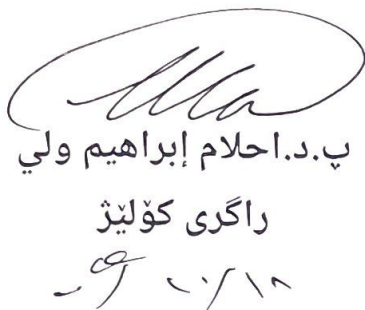 پ.د.احلام إبراهيم ولي
راگری كۆلێژ
١٠/١٨